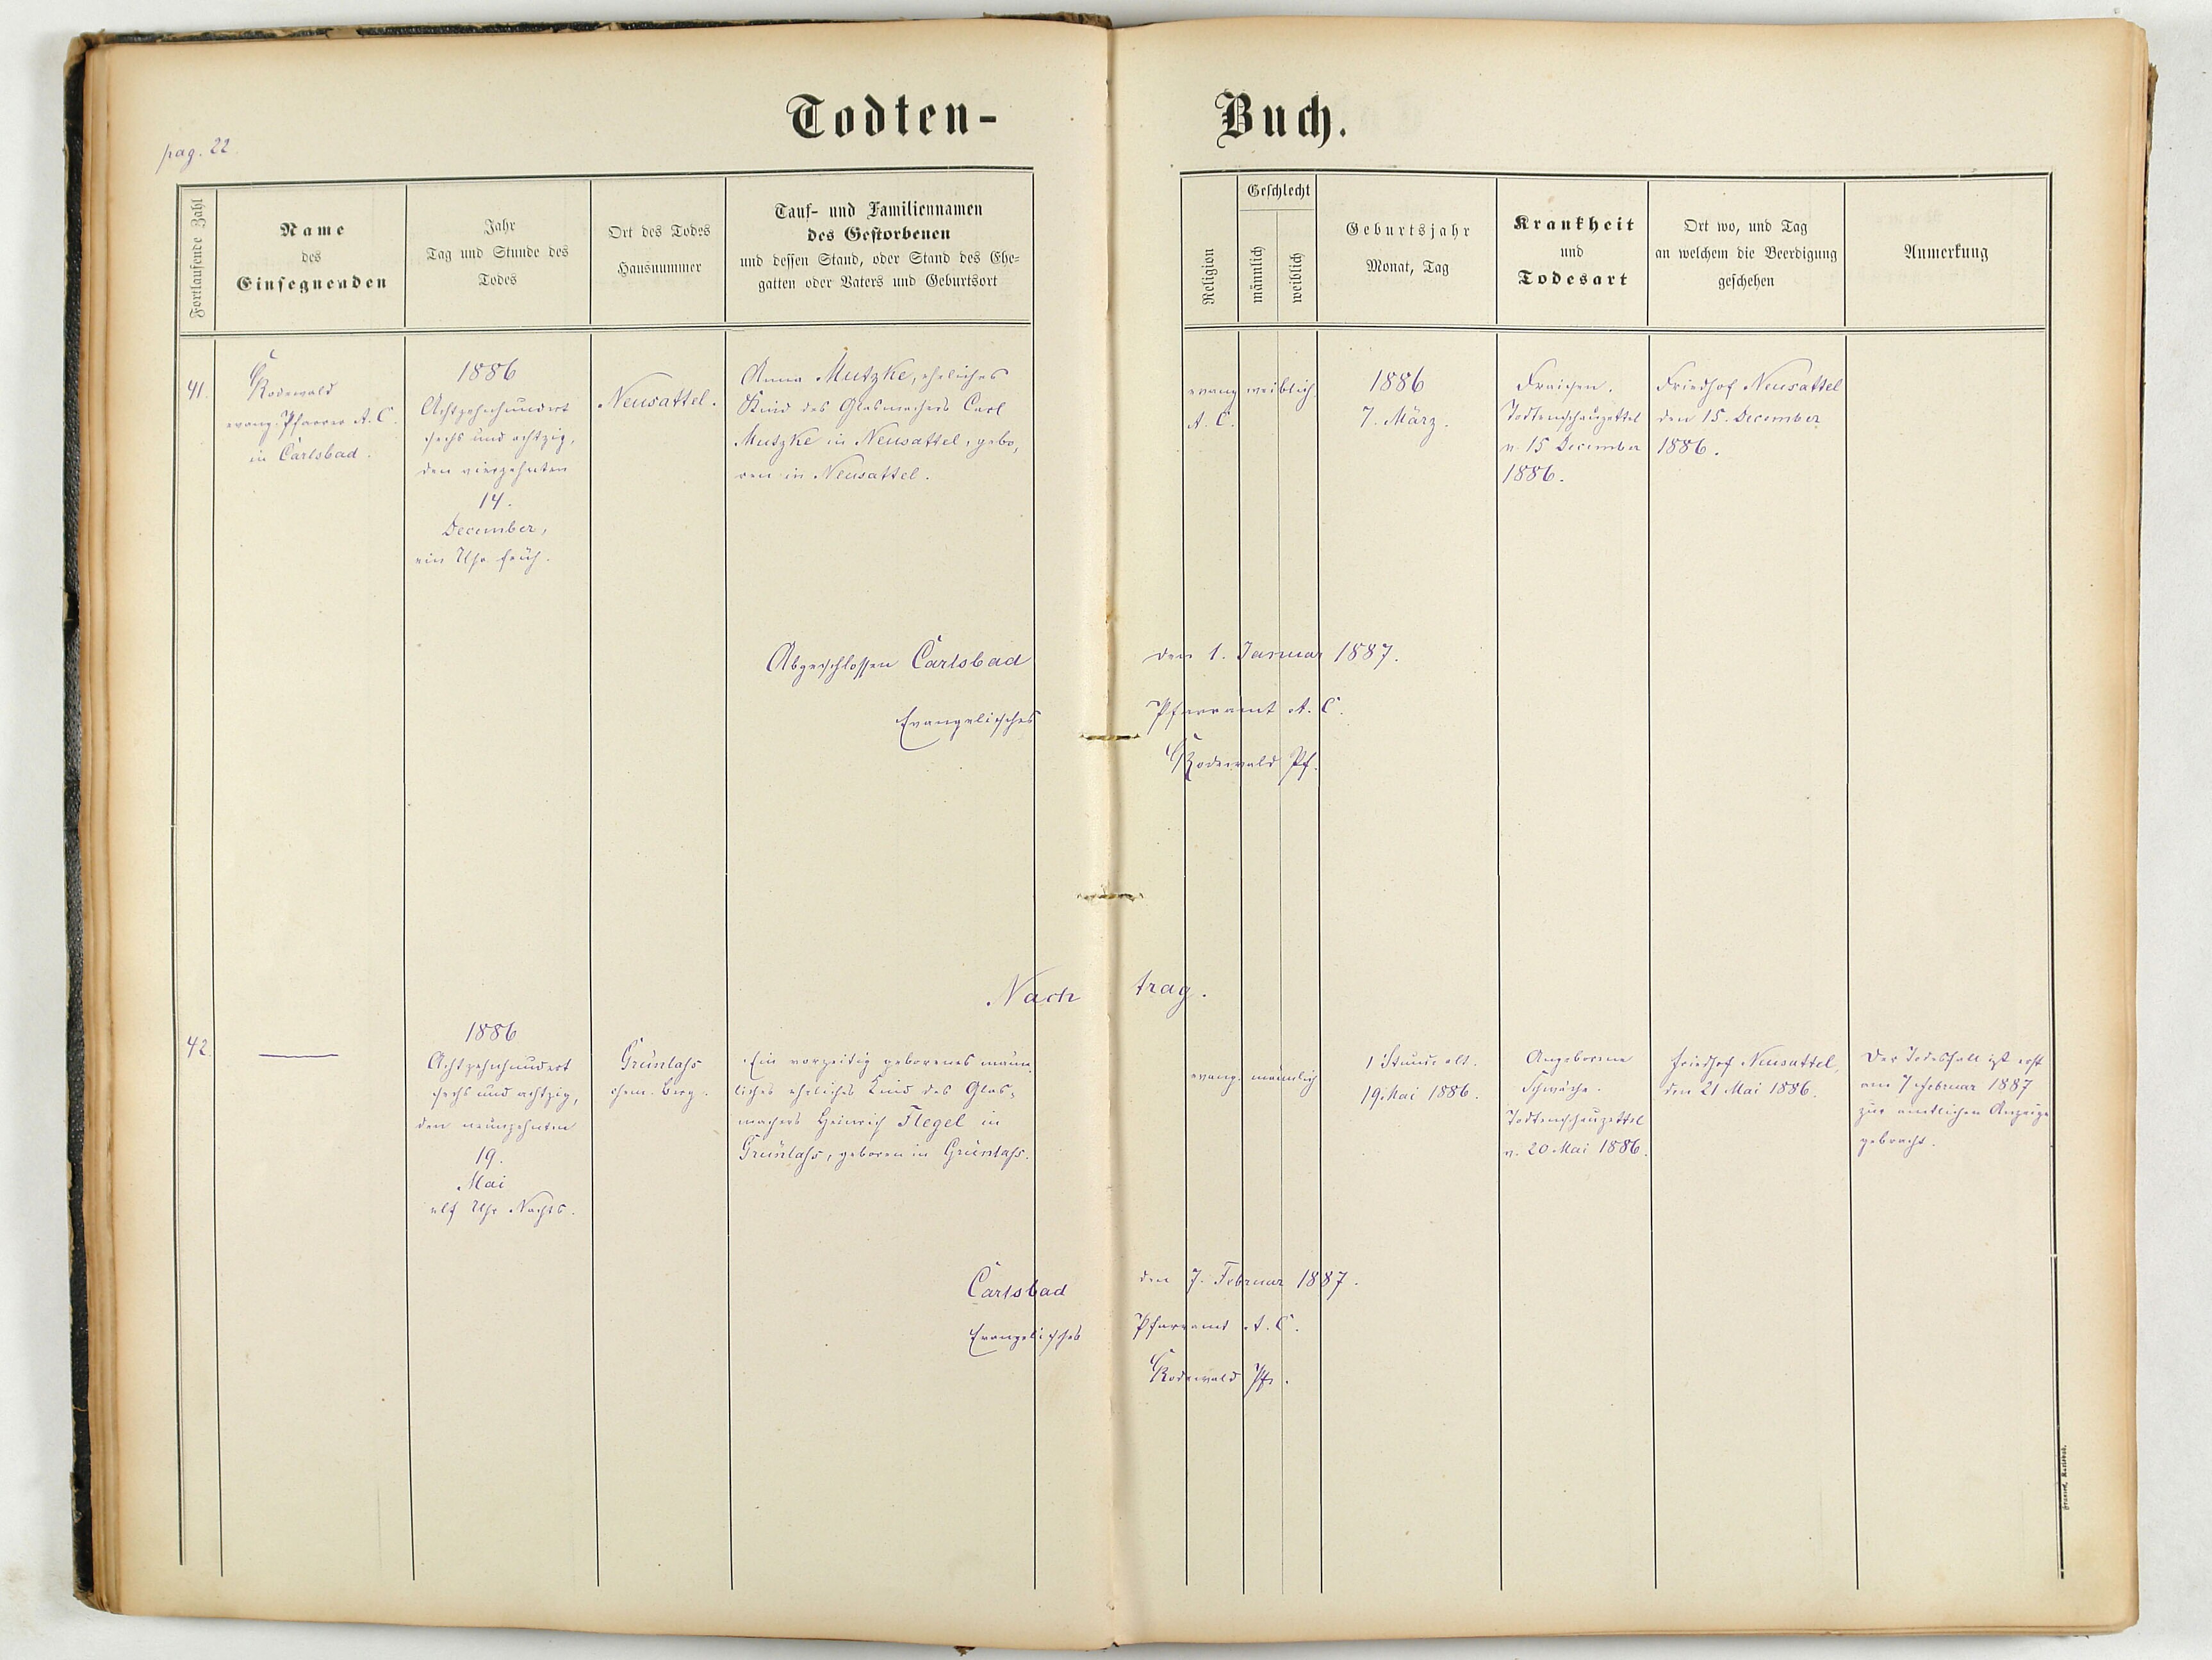 Todten-
Buch.
pag. 22.
Fortlaufende Zahl
Name
des
Einsegnenden
Jahr
Tag und Stunde des
Todes
Ort des Todes
Hausnummer
Tauf- und Familiennamen
des Gestorbenen
und dessen Stand, oder Stand des Ehe-
gatten oder Vaters und Geburtsort
Religion
Geschlecht
männlich
weiblich
Geburtsjahr
Monat, Tag
Krankheit
und
Todesart
Ort wo, und Tag
an welchem die Beerdigung
geschehen
Anmerkung
41.
Rodewald
evang. Pfarrer A. C.
in Carlsbad.
1886
Achtzehnhundert
sechs und achtzig,
den vierzehnten
14.
December,
ein Uhr früh.
Neusattel.
Anna Mutzke, eheliches
Kind des Glasmachers Carl
Mutzke in Neusattel, gebo-
ren in Neusattel.
evang.
A. C.
weiblich
1886
7. März.
Fraisen.
Todtenschauzettel
v. 15 December
1886.
Friedhof Neusattel
den 15. December
1886.
Abgeschlossen Carlsbad den 1. Januar 1887.
Evangelisches Pfarramt A. C.
Rodewald Pf.
Nachtrag.
42.
1886
Achtzehnhundert
sechs und achtzig,
den neunzehnten
19.
Mai
elf Uhr Nachts.
Grünlass
chem. Berg.
Ein vorzeitig geborenes männ-
liches eheliches Kind des Glas-
machers Heinrich Flegel in
Grünlass, geboren in Grünlass.
evang.
männlich
1 Stunde alt.
19. Mai 1886.
Angeborene
Schwäche.
Todtenschauzettel
v. 20 Mai 1886.
Friedhof Neusattel,
den 21 Mai 1886.
Der Todesfall ist erst
am 7 Februar 1887
zur amtlichen Anzeige
gebracht.
Carlsbad den 7. Februar 1887.
Evangelisches Pfarramt A. C.
Rodewald Pf.